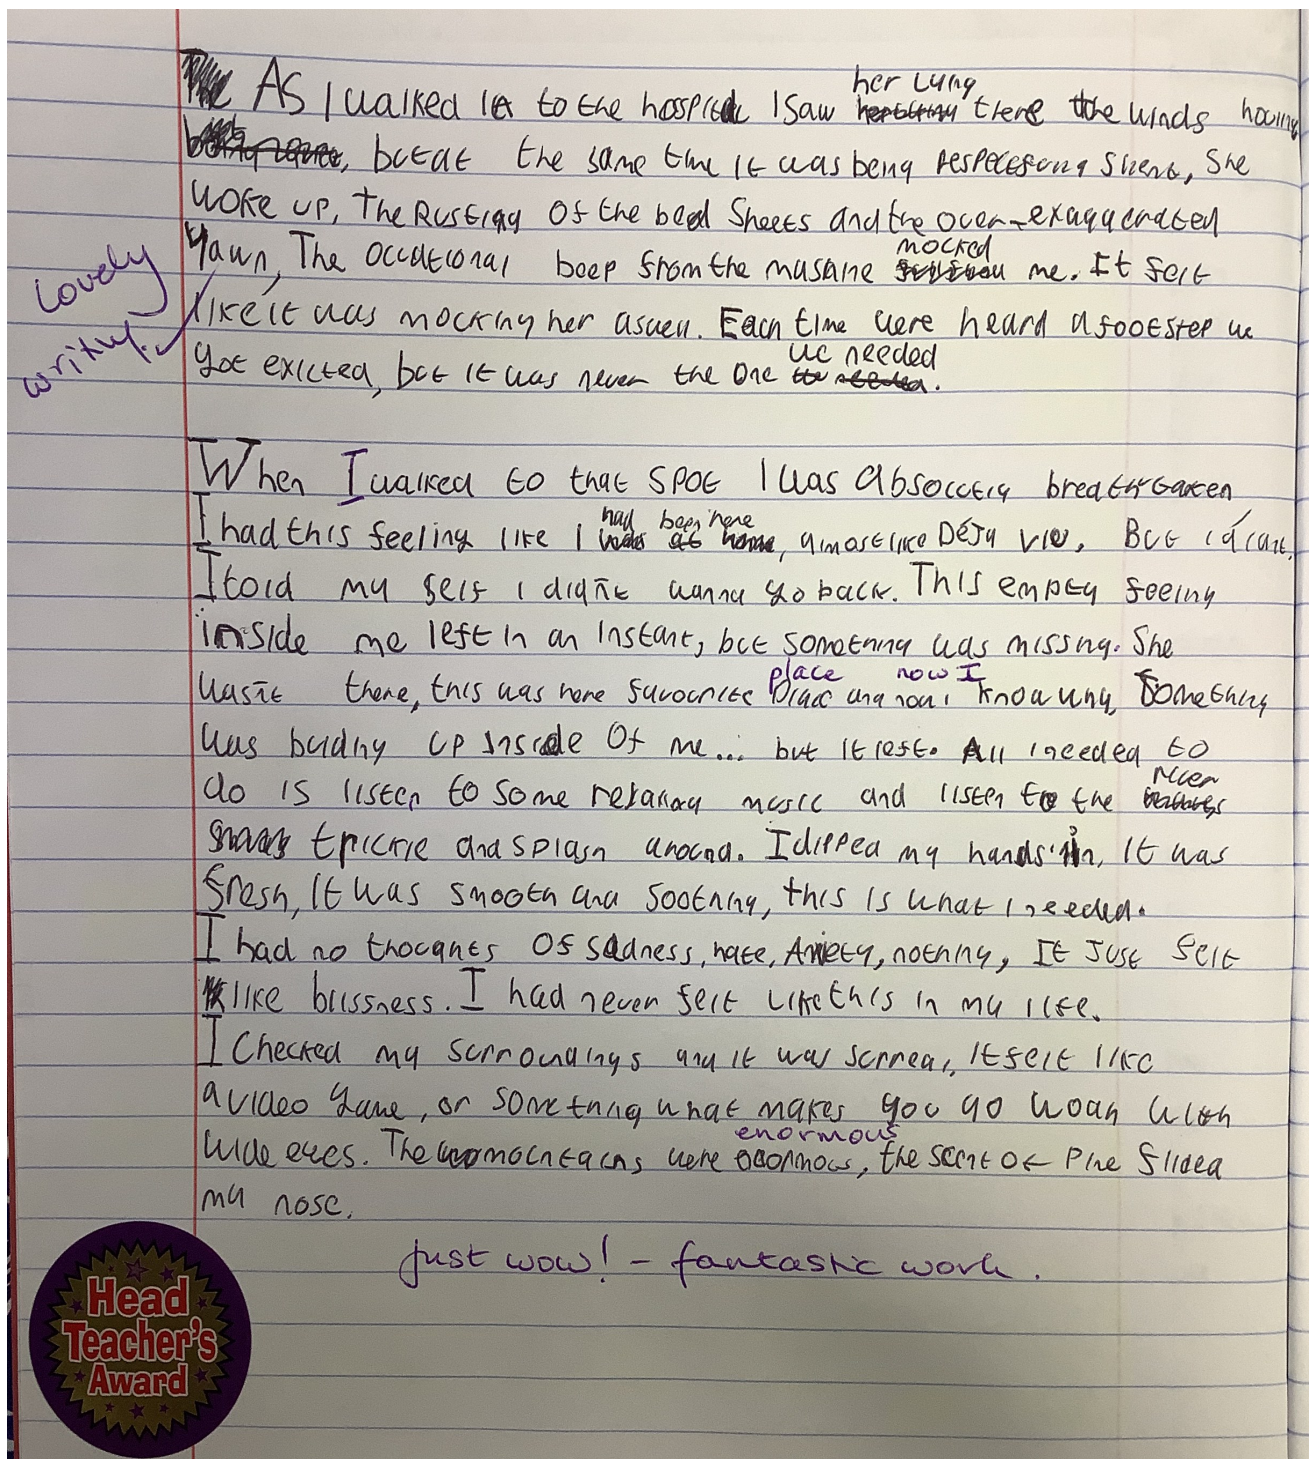 her lying
As I walked in to the hospital I saw there the winds howling
, but at the same time it was being respectfully silent, She
woke up, The Rustling of the bed Sheets and the over-exaggerated
Yawn, The occational beep from the mashine mocked me. It felt
like it was mocking her aswell. Each time were heard a footstep we
got exicted, but it was never the one we needed.
Lovely
writing.
When I walked to that spot I was absolutly breathtaken
I had this feeling like I had been here, almost like Deja viu. But i dont.
I told my self i didn't wanna go back. This empty feeling
inside me left in an instant, but something was missing. She
wasn't there, this was here favourite place and now I know why, Something
was building up inside of me... but it left. All i needed to
do is listen to some relaxing music and listen to the river
trickle and splash around. I dipped my hands in, it was
fresh, it was smooth and soothing, this is what I needed.
I had no thoughts of sadness, hate, Anxiety, nothing, It Just felt
like blissness. I had never felt like this in my life.
I Checked my surroundings and it was surreal, it felt like
a video game, or something what makes you go woah with
wide eyes. The mountains were enormous, the scent of Pine filled
my nose.
Just wow! - fantastic work.
Head
Teacher's
Award